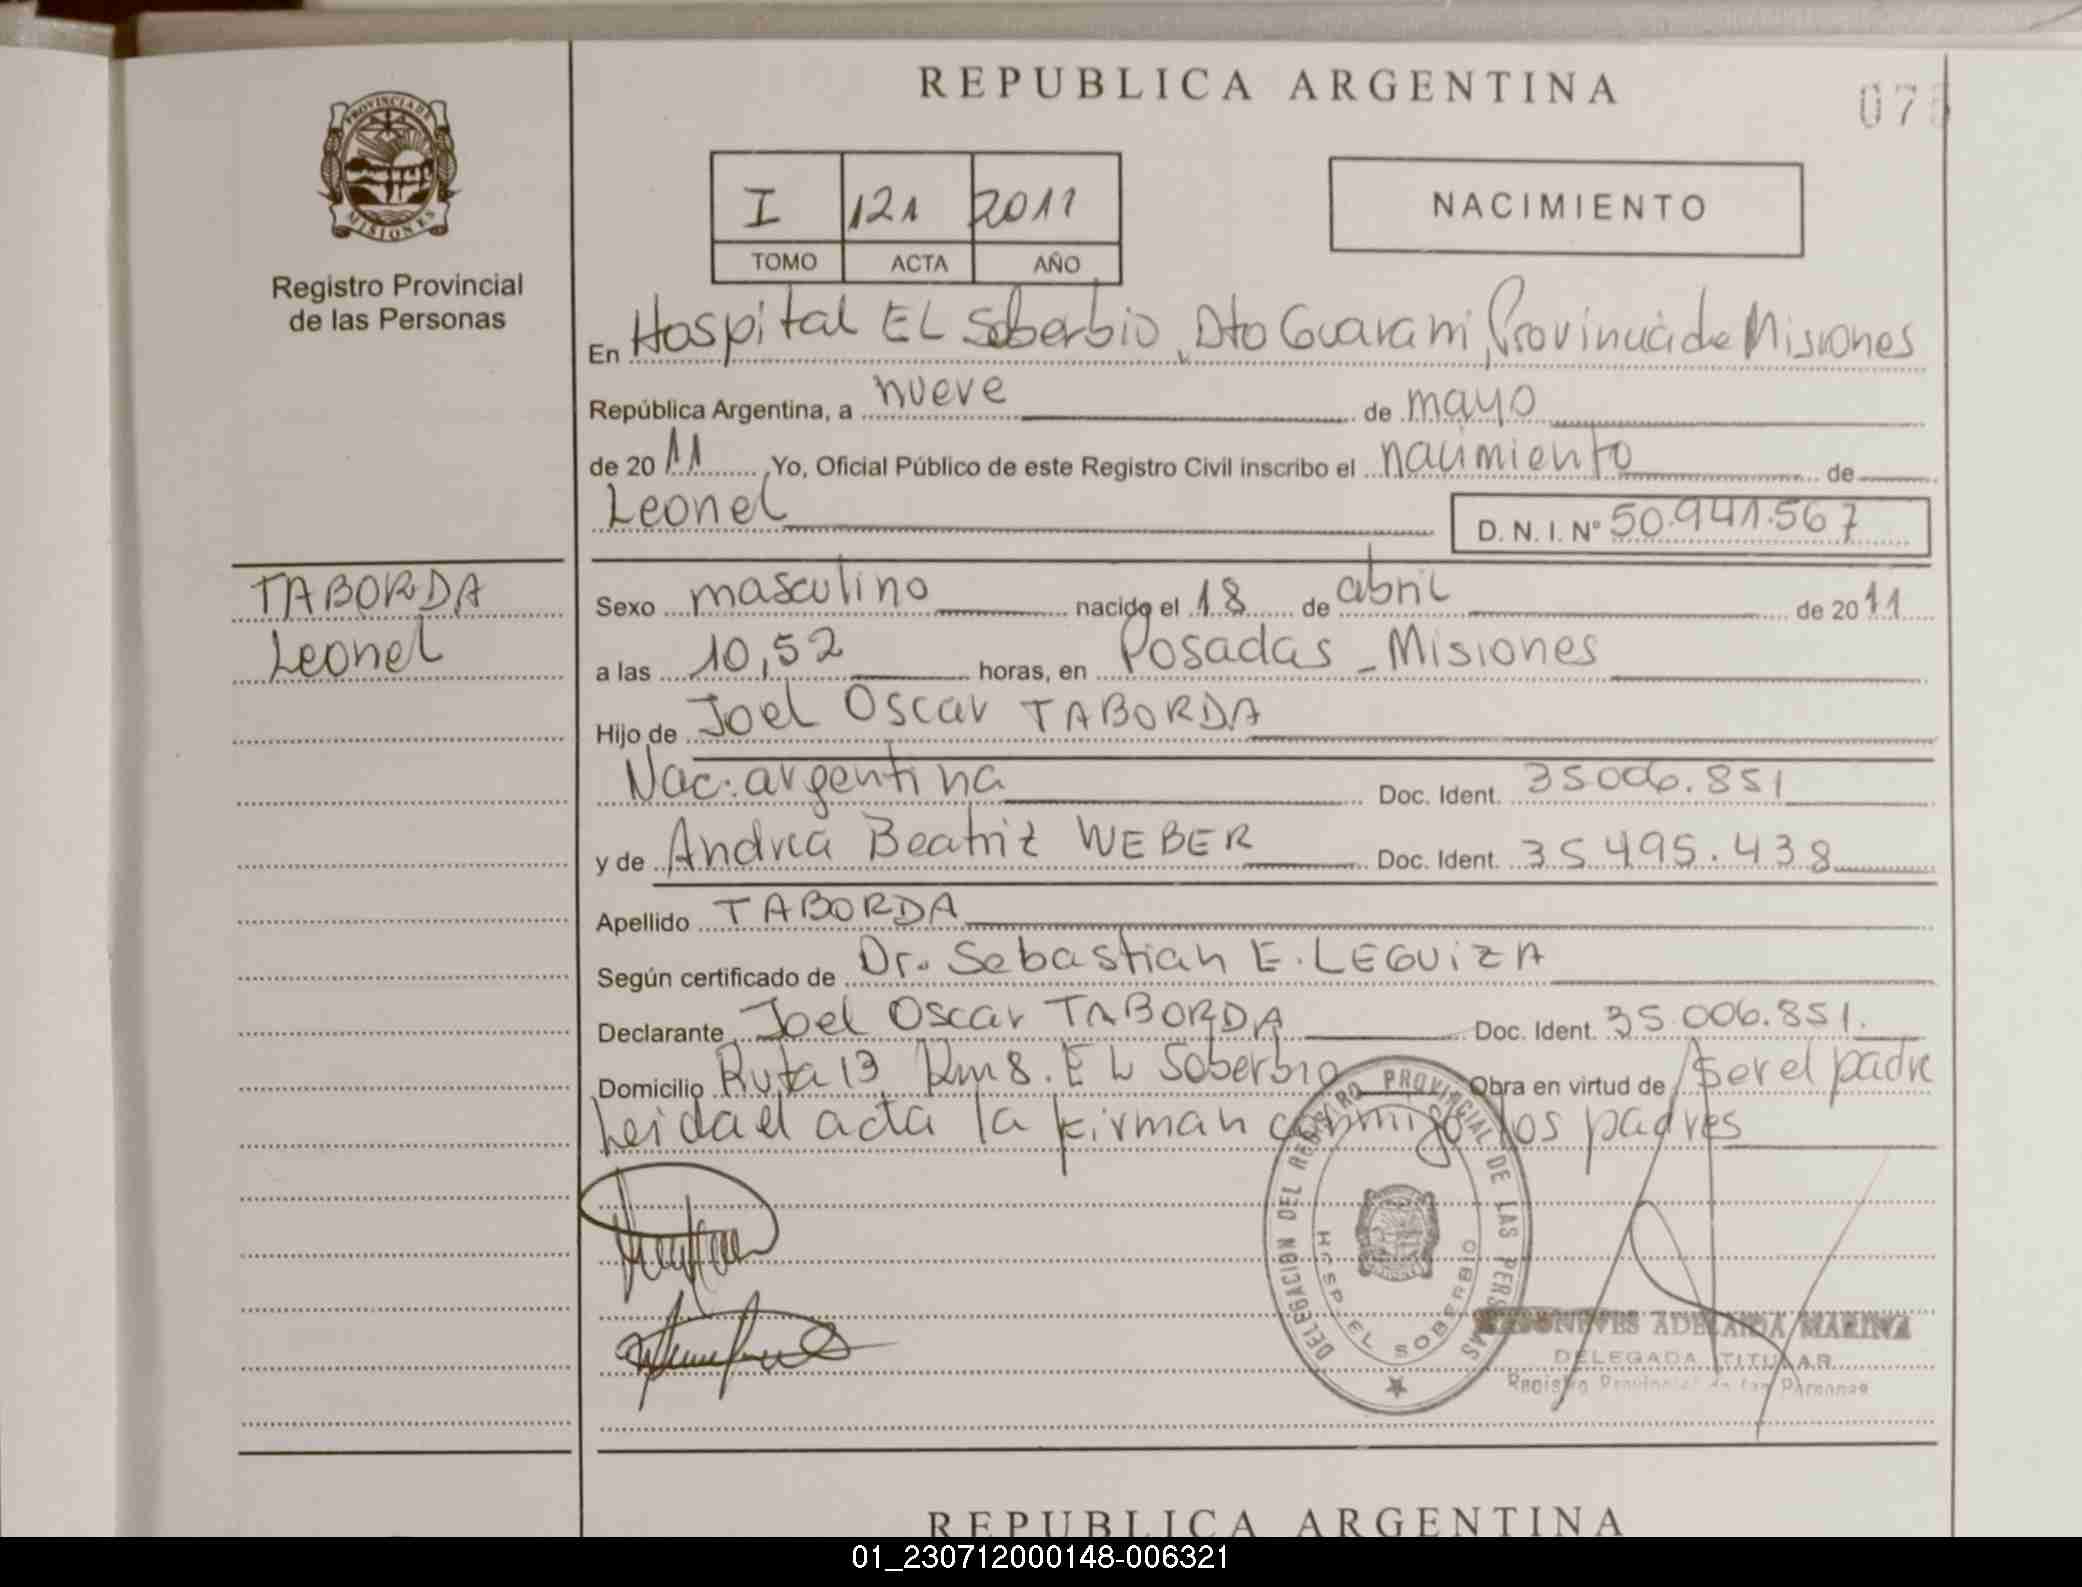 REPUBLICA ARGENTINA
PROVINCIA DE MISIONES
Registro Provincial
de las Personas
I 121 2011
TOMO ACTA AÑO
NACIMIENTO
En Hospital EL Soberbio, Dto Guarani, Provincia de Misiones
República Argentina, a nueve de mayo
de 2011 Yo, Oficial Público de este Registro Civil inscribo el nacimiento de
Leonel D. N. I. Nº 50.941.567
TABORDA
Leonel
Sexo masculino nacido el 18 de abril de 2011
a las 10,52 horas, en Posadas - Misiones
Hijo de Joel Oscar TABORDA
Nac. argentina Doc. Ident. 35006.851
y de Andrea Beatriz WEBER Doc. Ident. 35495.438
Apellido TABORDA
Según certificado de Dr. Sebastian E. LEGUIZA
Declarante Joel Oscar TABORDA Doc. Ident. 35.006.851.
Domicilio Ruta 13 Km 8. EL Soberbio Obra en virtud de ser el padre
Leida el acta la firman conmigo los padres
DELEGACION DEL REGISTRO PROVINCIAL DE LAS PERSONAS
HOSP. EL SOBERBIO
ADELAIDA MARINA
DELEGADA TITULAR
Registro Provincial de las Personas
REPUBLICA ARGENTINA
01_230712000148-006321